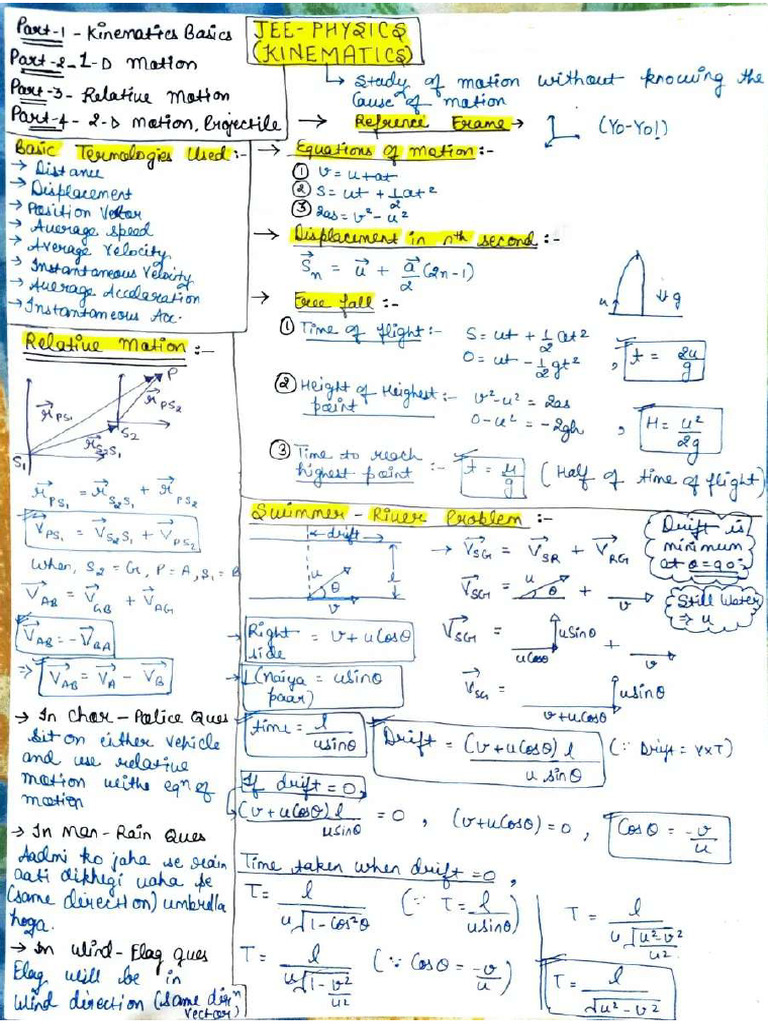 Part-1 - Kinematics Basics
Part-2 - 1-D Motion
Part-3 - Relative Motion
Part-4 - 2-D Motion, Projectile
JEE-PHYSICS
(KINEMATICS)
↳ Study of motion without knowing the
Cause of motion
→ Refrence Frame → (Yo-Yo!)
Basic Termologies Used :-
→ Distance
→ Displacement
→ Position Vector
→ Average speed
→ Average Velocity
→ Instantaneous Velocity
→ Average Acceleration
→ Instantaneous Acc.
→ Equations of motion :-
① v = u+at
② S = ut + 1/2 at²
③ 2as = v² - u²
→ Displacement in nth second :-
S⃗n = u⃗ + a⃗/2 (2n-1)
→ Free fall :-
u ↓g
① Time of flight :- S = ut + 1/2 at²
0 = ut - 1/2 gt² , t = 2u/g
② Height of Heighest point :- v² - u² = 2as
0 - u² = -2gh , H = u²/2g
③ Time to reach highest point :- t = u/g (Half of time of flight)
Relative Motion :-
P
r⃗PS₁
r⃗PS₂
S₂
r⃗S₂S₁
S₁
r⃗PS₁ = r⃗S₂S₁ + r⃗PS₂
V⃗PS₁ = V⃗S₂S₁ + V⃗PS₂
When, S₂ = G, P = A, S₁ = B
V⃗AB = V⃗GB + V⃗AG
V⃗AB = -V⃗BA
⇒ V⃗AB = V⃗A - V⃗B
→ In Chor-Police Ques
Sit on either vehicle
and use relative
motion withe eqn of
motion
→ In Man-Rain Ques
Aadmi ko jaha se rain
aati dikhegi waha pe
(same direction) umbrella
hoga.
→ In Wind-Flag Ques
Flag will be in
Wind direction (same dirn
vector)
Swimmer - River Problem :-
drift
u
θ
v
l
→ V⃗SG = V⃗SR + V⃗RG
V⃗SG = u θ + v
V⃗SG = uCosθ uSinθ + v
V⃗SG = v+uCosθ uSinθ
Drift is
minimum
at θ=90°
Still Water
⇒ u
→ Right side = v + uCosθ
→ ⊥(Naiya paar) = usinθ
time = l/usinθ
Drift = (v+uCosθ) l / u sinθ (∵ Drift = V×T)
If drift = 0,
(v+uCosθ) l / usinθ = 0 , (v+uCosθ) = 0 , Cosθ = -v/u
Time taken when drift = 0,
T = l / u√1-Cos²θ (∵ T = l/usinθ)
T = l / u√1-v²/u² (∵ Cosθ = -v/u)
T = l / u√u²-v²/u²
T = l / √u²-v²